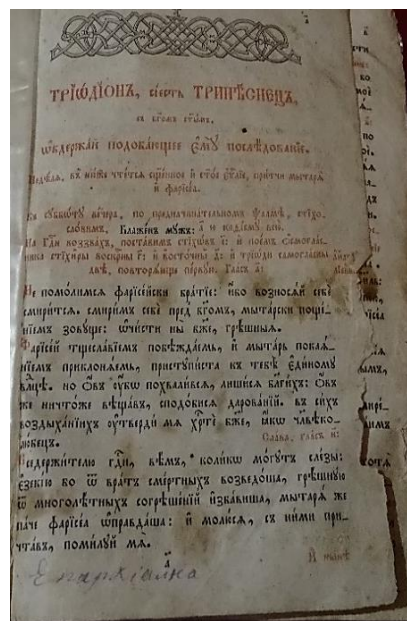 ТРІѠ҆́ДІОНЪ, сі́есть ТРИПѢ́СНЕЦЪ,
съ бг҃омъ ст҃ы́мъ,
ѡ҆держа́й подоба́ющее є҆мꙋ̀ послѣ́дованїе.
Недѣ́ля, въ ню́же чте́тсѧ сщ҃е́нное и҆ ст҃о́е є҆ѵⷢ҇лїе, при́тчи мытарѧ̀
и҆ фарїсе́а.
Въ сꙋббѡ́тꙋ ве́чера, по предначина́тельномъ ѱалмѣ̀, стїхо-
сло́вимъ, Блаже́нъ мꙋ́жъ: а҃ ю каѳі́смꙋ всю̀.
На Гдⷭ҇и воззва́хъ, поста́вимъ стїхѡ́въ і҃: и҆ пое́мъ самогла́с-
стїхи̑ры воскрⷭ҇ны г҃: и҆ восто́чны д҃: и҆ трїѡ́ди самогла̑сны
двѣ̀, повторѧ́юще пе́рвꙋю. Гла́съ а҃:
Не помо́лимсѧ фарїсе́йски бра́тїе: и҆́бо возносѧ́й себѐ
смири́тсѧ. смири́мъ себѐ пред̾ бг҃омъ, мыта́рски поще́-
нїемъ зовꙋ́ще: ѡ҆чи́сти ны̀ бж҃е, грѣ́шныѧ.
Фарїсе́й тщесла́вїемъ побѣжда́емь, и҆ мыта́рь покаѧ́-
нїемъ приклонѧ́емь, пристꙋпи́ста къ тебѣ̀ є҆ди́номꙋ
влⷣцѣ. но ѻ҆́въ ᲂу҆́бѡ похвали́всѧ, лиши́сѧ благи́хъ: ѻ҆́въ
же ничто́же вѣща́въ, сподо́бисѧ дарова́нїй. въ си́хъ
воздыха́нїихъ ᲂу҆тверди́ мѧ хрⷭ҇тѐ бж҃е, ꙗ҆́кѡ чл҃вѣко-
лю́бецъ.
Сла́ва, гла́съ и҃:
Вседержи́телю гдⷭ҇и, вѣ́мъ, коли́кѡ мо́гꙋтъ сле́зы:
є҆зекі́ю бо ѿ вра́тъ сме́ртныхъ возведо́ша, грѣ́шнꙋю
ѿ многолѣ́тныхъ согрѣше́нїй и҆зба́виша, мытарѧ́ же
па́че фарїсе́а ѡ҆правда́ша: и҆ молю́сѧ, съ ни́ми при-
чта́въ, поми́лꙋй мѧ̀.
а҃
И҆ ны́нѣ
Епархіална